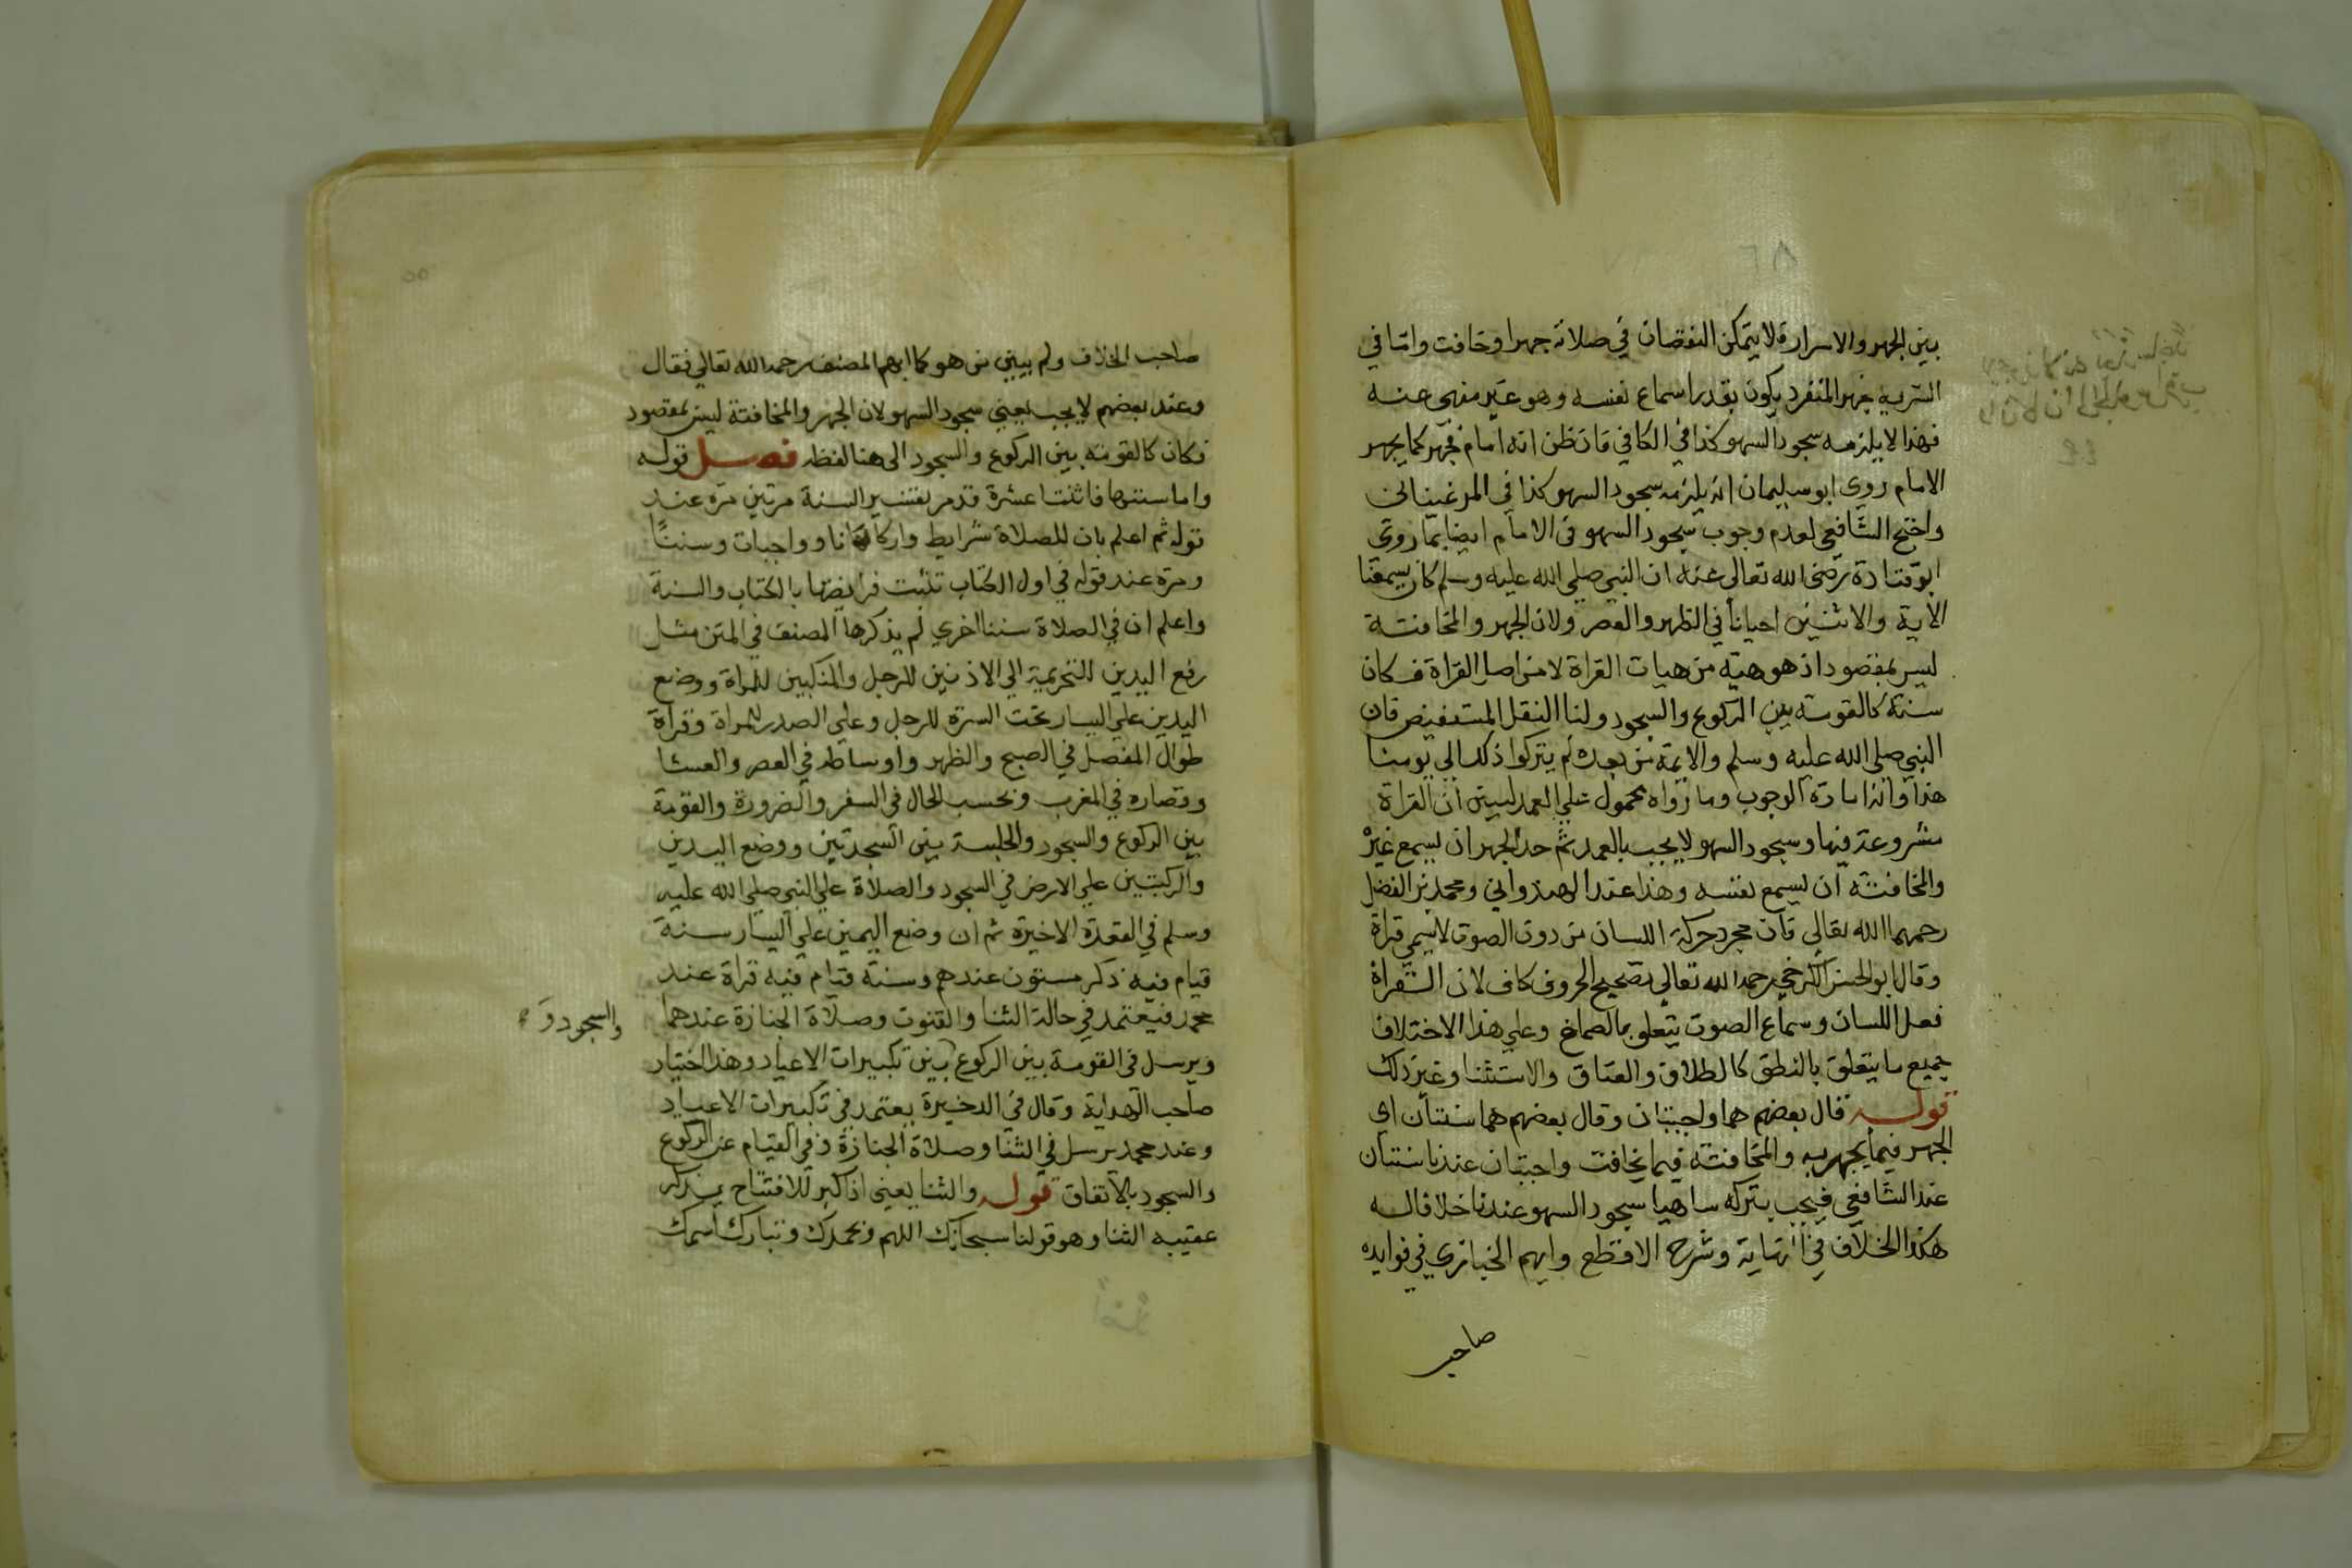 بين الجهر والاسرار فلا يتمكن النقصان في صلاته جهرا وخافت واما في
السرية فجهر المنفرد يكون بقدر اسماع نفسه وهو غير منهي عنه
فهذا لا يلزمه سجود السهو كذا في الكافي فان ظن انه امام فجهر كما يجهر
الامام روي ابو سليمان انه يلزمه سجود السهو كذا في المرغيناني
واحتج الشافعي لعدم وجوب سجود السهو في الامام ايضا بما روي
ابو قتادة رضي الله تعالي عنه ان النبي صلي الله عليه وسلم كان يسمعنا
الآية والاثنين احيانا في الظهر والعصر ولان الجهر والمخافتة
ليس بمقصود اذ هو هيئة من هيات القراة لا من اصل القراة فكان
سنة كالقومة بين الركوع والسجود ولنا النقل المستفيض فان
النبي صلي الله عليه وسلم والايمة من بعده لم يتركوا ذلك الي يومنا
هذا وانه امارة الوجوب وما رواه محمول علي العمد ليبين ان القراة
مشروعة فيها وسجود السهو لا يجب بالعمد ثم حد الجهر ان يسمع غيره
والمخافتة ان يسمع نفسه وهذا عند الهندواني ومحمد بن الفضل
رحمهما الله تعالي فان مجرد حركة اللسان من دون الصوت لا يسمي قراة
وقال ابو الحسن الكرخي رحمه الله تعالي تصحيح الحروف كاف لان القراة
فعل اللسان وسماع الصوت يتعلق بالصماخ وعلي هذا الاختلاف
جميع ما يتعلق بالنطق كالطلاق والعتاق والاستثنا وغير ذلك
قوله قال بعضهم هما واجبتان وقال بعضهم هما سنتان اي
الجهر فيما يجهر به والمخافتة فيما يخافت واجبتان عندنا سنتان
عند الشافعي فيجب بتركه ساهيا سجود السهو عندنا خلافا له
هكذا الخلاف في النهاية وشرح الاقطع وابهم الخبازي في فوايده
صاحب
صاحب الخلاف ولم يبين من هو كما ابهم المصنف رحمه الله تعالي فقال
وعند بعضهم لا يجب يعني سجود السهو لان الجهر والمخافتة ليس بمقصود
فكان كالقومة بين الركوع والسجود الي هنا لفظه فصل قوله
واما سننها فاثنتا عشرة قد مر تفسير السنة مرتين مرة عند
قوله ثم اعلم بان للصلاة شرايط واركانا وواجبات وسننًا
ومرة عند قوله في اول الكتاب تثبت فرايضها بالكتاب والسنة
واعلم ان في الصلاة سننا اخري لم يذكرها المصنف في المتن مثل
رفع اليدين للتحريمة الي الاذنين للرجل والمنكبين للمراة ووضع
اليدين علي اليسار تحت السرة للرجل وعلي الصدر للمراة وقراة
طوال المفصل في الصبح والظهر واوساطه في العصر والعشا
وقصاره في المغرب وبحسب الحال في السفر والضرورة والقومة
بين الركوع والسجود والجلسة بين السجدتين ووضع اليدين
والركبتين علي الارض في السجود والصلاة علي النبي صلي الله عليه
وسلم في القعدة الاخيرة ثم ان وضع اليمين علي اليسار سنة
قيام فيه ذكر مسنون عندهم وسنة قيام فيه قراة عند
محمد فيعتمد في حالة الثنا والقنوت وصلاة الجنازة عندهما
والسجود و
ويرسل في القومة بين الركوع بين تكبيرات الاعياد وهذا اختيار
صاحب الهداية وقال في الذخيرة يعتمد في تكبيرات الاعياد
وعند محمد يرسل في الثنا وصلاة الجنازة وفي القيام عن الركوع
والسجود بالاتفاق قوله والثنا يعني اذا كبر للافتتاح يذكر
عقيبه الثنا وهو قولنا سبحانك اللهم وبحمدك وتبارك اسمك